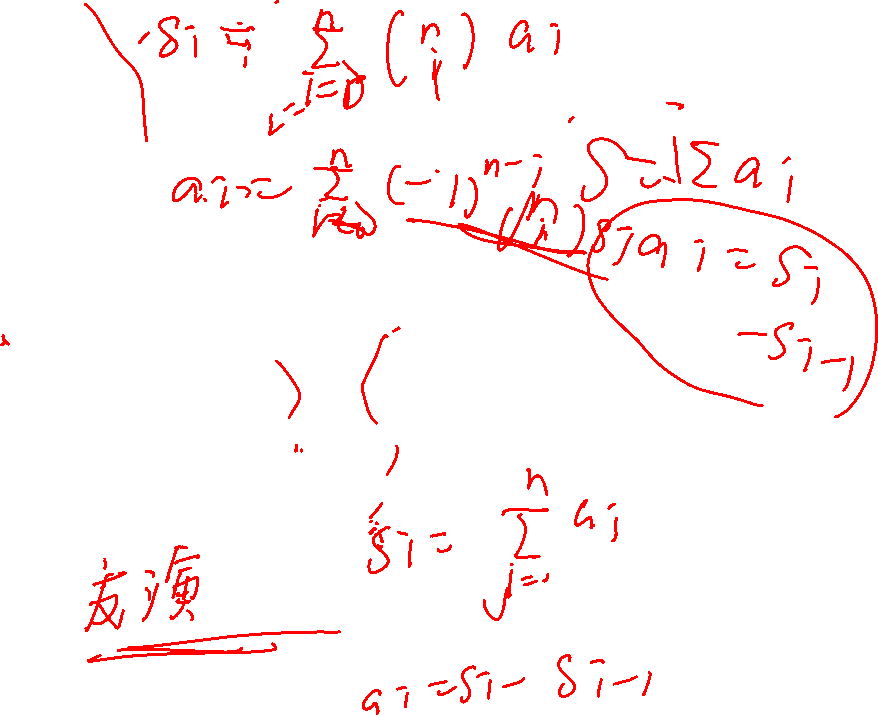 Si = \sum_{i=0}^{n} \binom{n}{i} ai
ai = \sum_{i=0}^{n} (-1)^{n-i} \binom{n}{i} Si
S = \sum ai
ai = Si
-Si-1
Si = \sum_{j=1}^{n} ai
ai = Si - Si-1